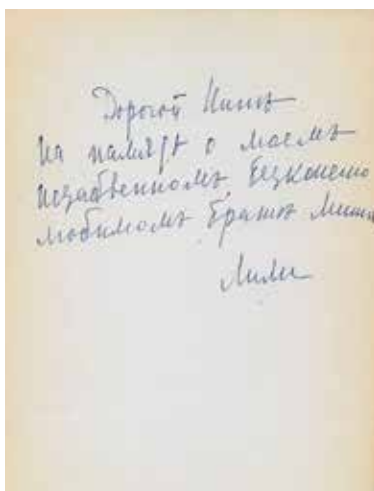 Дорогой Нинѣ
на память о моемъ
незабвенномъ, безконечно
любимомъ братѣ Миши
Лили